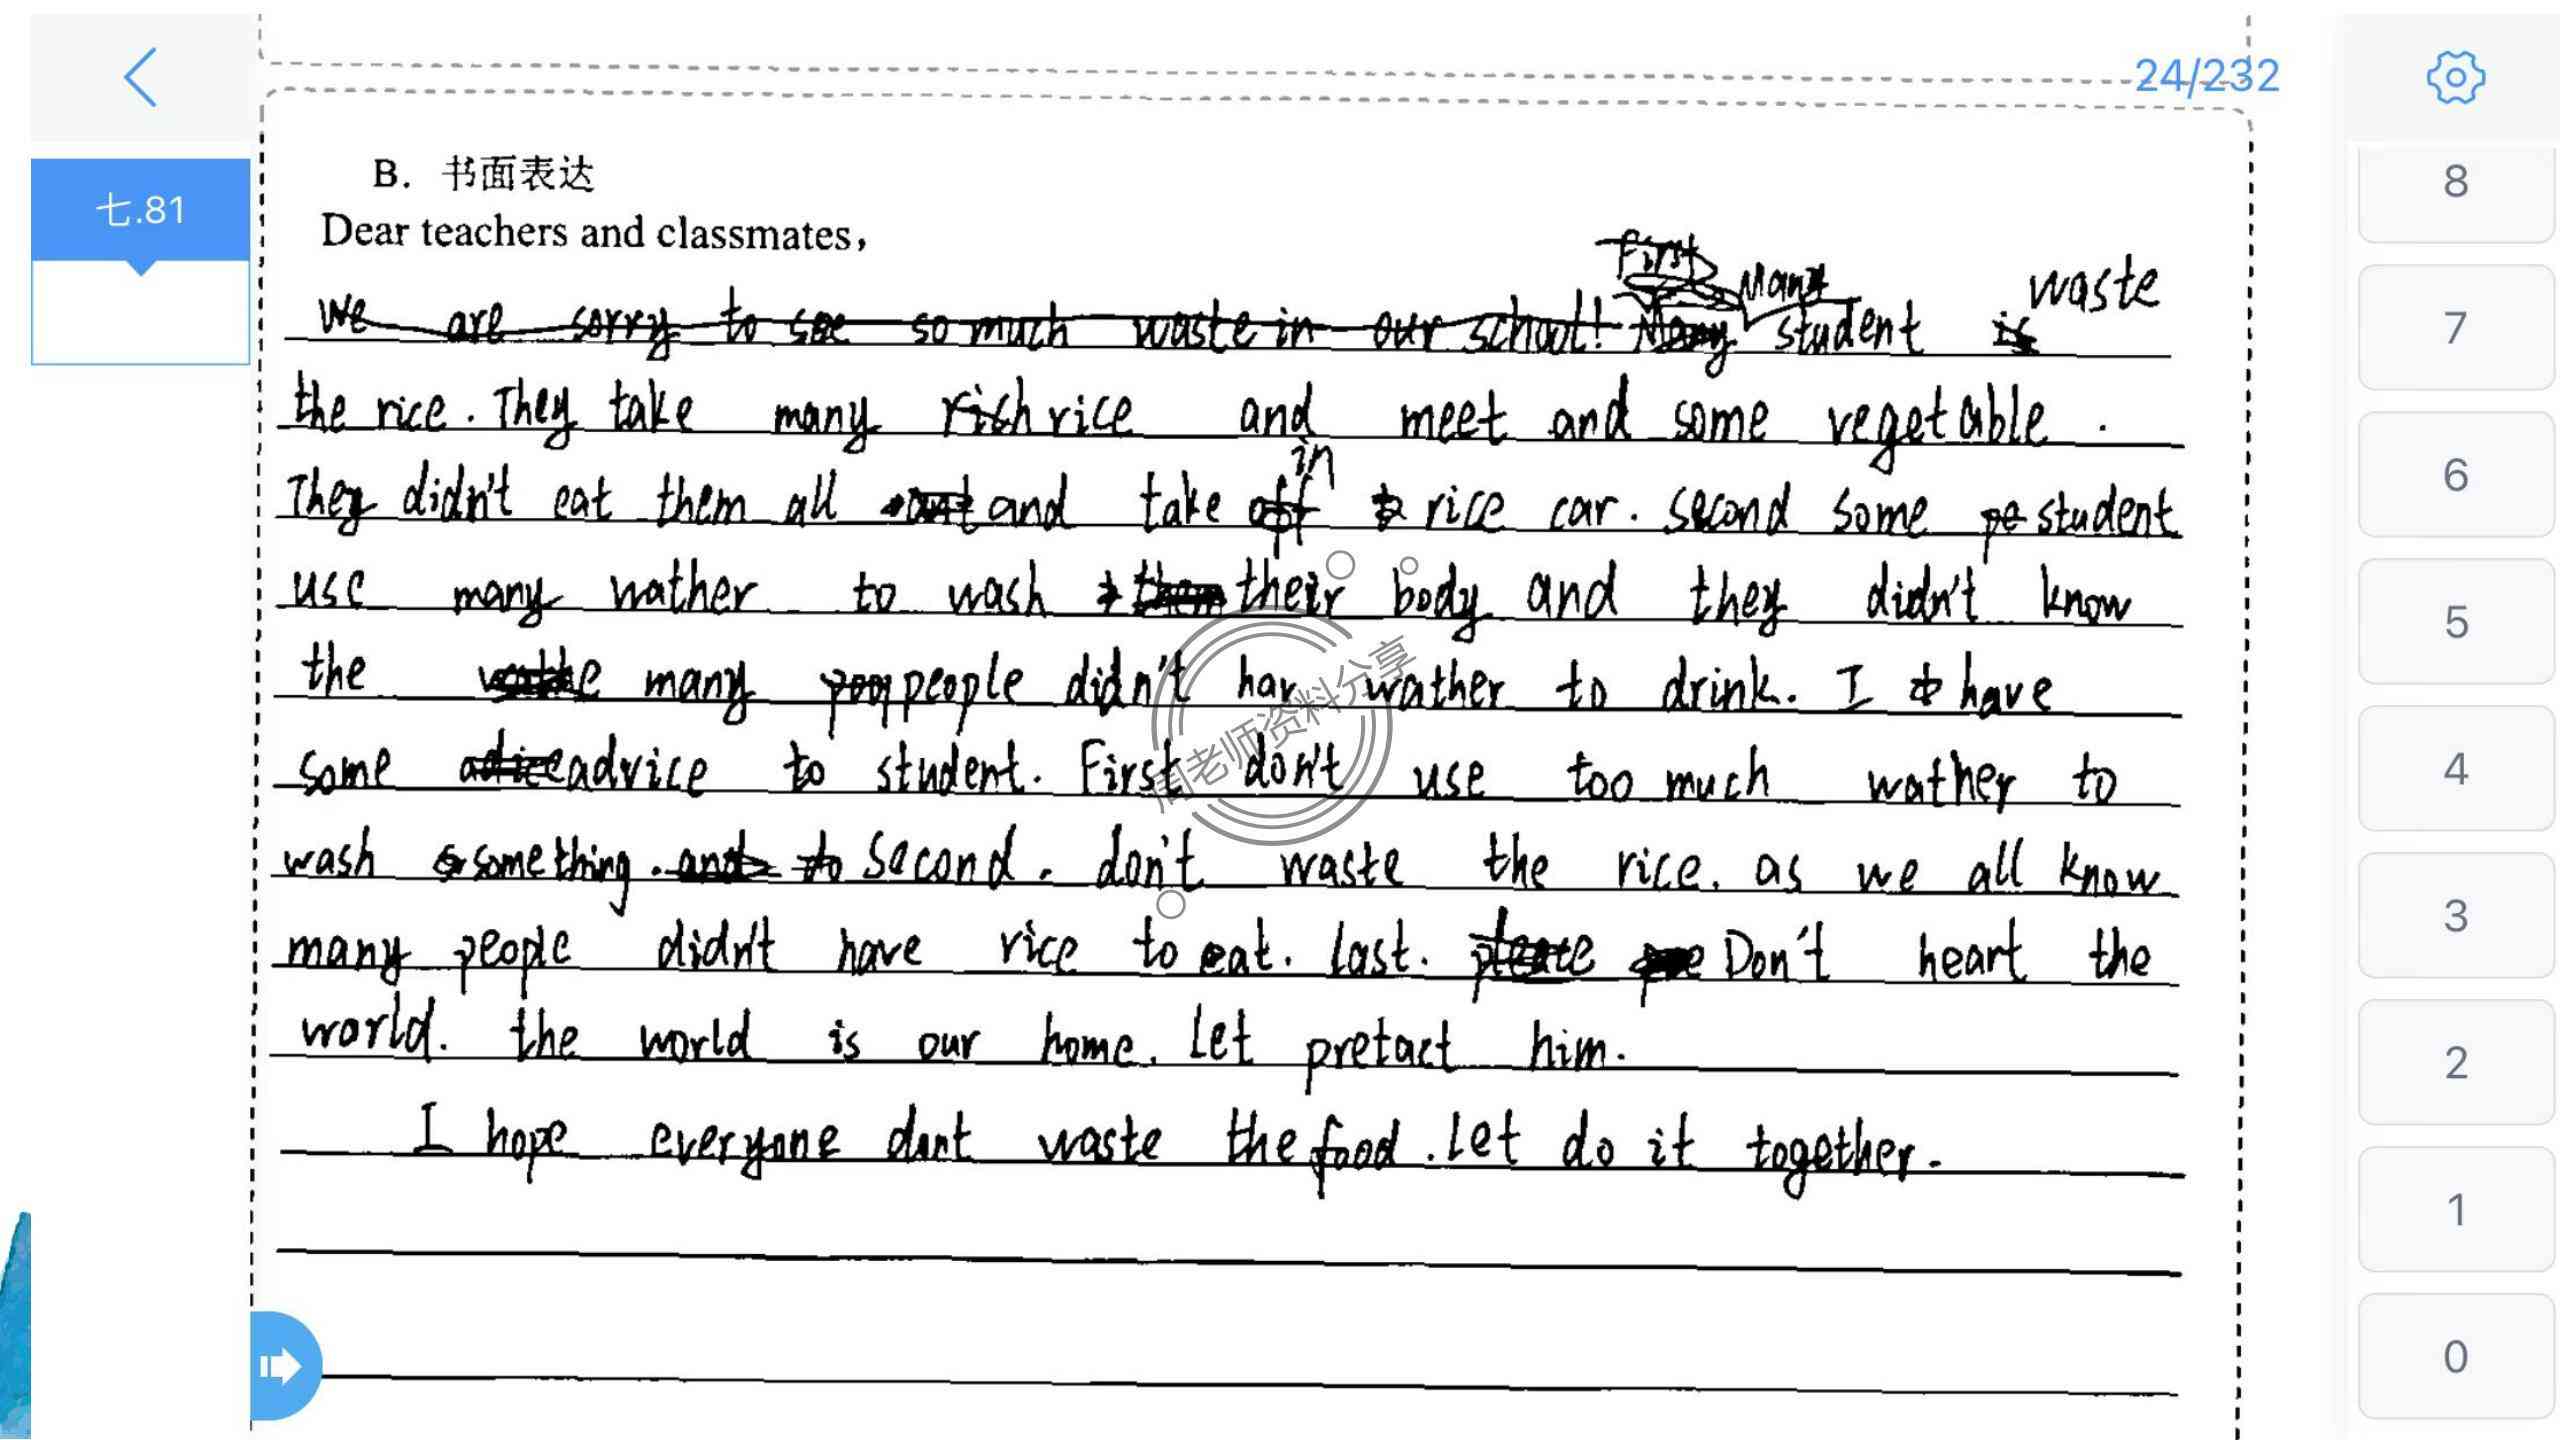 24/232
七.81
B. 书面表达
Dear teachers and classmates,
We are sorry to see so much waste in our school! First Many student is waste
the rice. They take many rich rice and meet and some vegetable.
They didn't eat them all and take off in rice car. second some pe student
use many wather to wash their body and they didn't know
the many people didn't hav wather to drink. I have
some advice to student. First don't use too much wather to
wash something. and to second. don't waste the rice. as we all know
many people didn't have rice to eat. last. Don't heart the
world. the world is our home. Let pretact him.
I hope everyone dont waste the food. Let do it together.
周老师资料分享
8
7
6
5
4
3
2
1
0